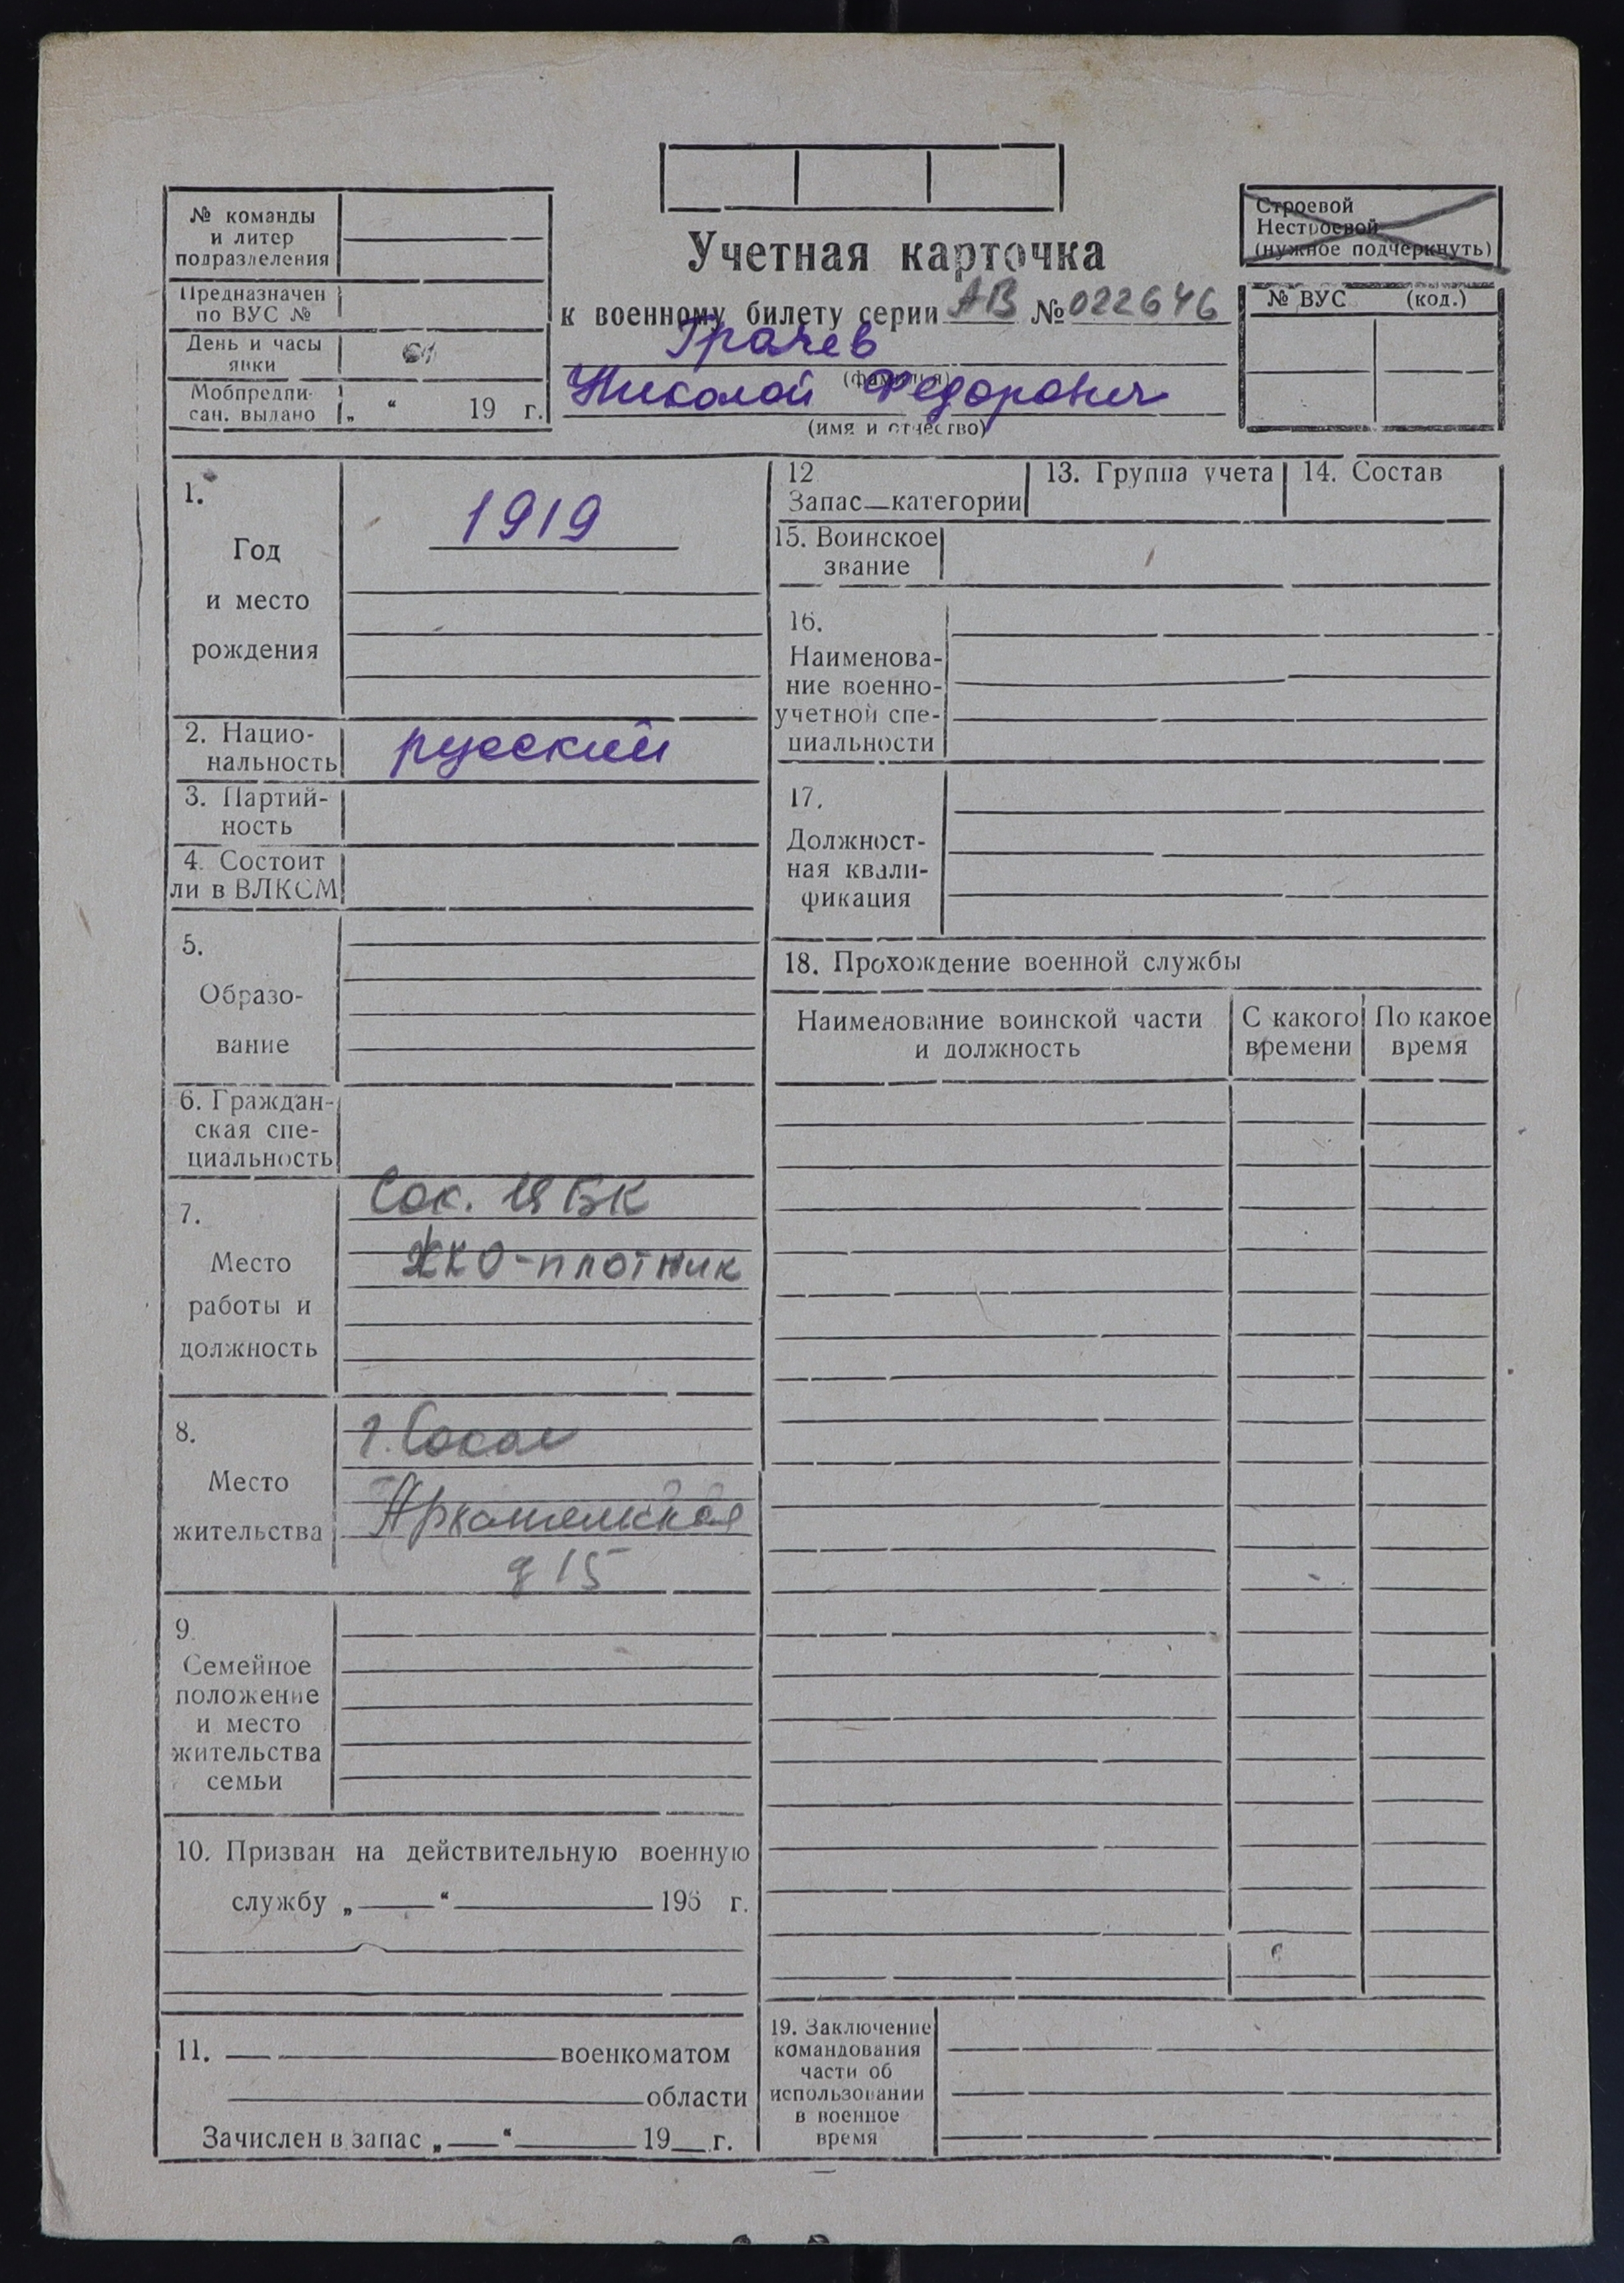 № команды
и литер
подразделения
Предназначен
по ВУС №
День и часы
явки
Мобпредпи-
сан. выдано „ “ 19 г.
Учетная карточка
к военному билету серии АВ № 022646
Грачев
(фамилия)
Николай Федорович
(имя и отчество)
Строевой
Нестроевой
(нужное подчеркнуть)
№ ВУС (код.)
1.
Год
и место
рождения
1919
2. Нацио-
нальность
русский
3. Партий-
ность
4. Состоит
ли в ВЛКСМ
5.
Образо-
вание
6. Граждан-
ская спе-
циальность
7.
Место
работы и
должность
Сок. ЦБК
ЖКО-плотник
8.
Место
жительства
г. Сокол
д 15
9.
Семейное
положение
и место
жительства
семьи
10. Призван на действительную военную
службу „ “ 195 г.
11. военкоматом
области
Зачислен в запас „ “ 19 г.
12
Запас—категории
13. Группа учета
14. Состав
15. Воинское
звание
16.
Наименова-
ние военно-
учетной спе-
циальности
17.
Должност-
ная квали-
фикация
18. Прохождение военной службы
Наименование воинской части
и должность
С какого
времени
По какое
время
19. Заключение
командования
части об
использовании
в военное
время